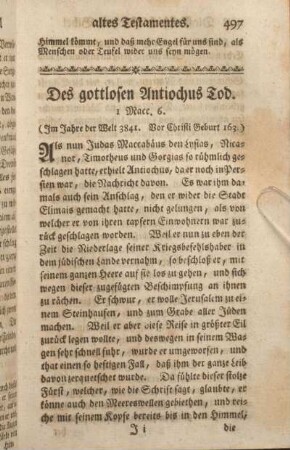 altes Testamentes. 497
Himmel kömmt, und daß mehr Engel für uns sind, als
Menschen oder Teufel wider uns seyn mögen.
Des gottlosen Antiochus Tod.
1 Macc. 6.
(Im Jahre der Welt 3841. Vor Christi Geburt 163.)
Als nun Judas Maccabäus den Lysias, Nica-
nor, Timotheus und Gorgias so rühmlich ge-
schlagen hatte, erhielt Antiochus, da er noch in Per-
sien war, die Nachricht davon. Es war ihm da-
mals auch sein Anschlag, den er wider die Stadt
Elimais gemacht hatte, nicht gelungen, als von
welcher er von ihren tapfern Einwohnern war zu-
rück geschlagen worden. Weil er nun zu eben der
Zeit die Niederlage seiner Kriegsbefehlshaber in
dem jüdischen Lande vernahm, so beschloß er, mit
seinem ganzen Heere auf sie los zu gehen, und sich
wegen dieser zugefügten Beschimpfung an ihnen
zu rächen. Er schwur, er wolle Jerusalem zu ei-
nem Steinhaufen, und zum Grabe aller Jüden
machen. Weil er aber diese Reise in größter Eil
zurück legen wollte, und deswegen in seinem Wa-
gen sehr schnell fuhr, wurde er umgeworfen, und
that einen so heftigen Fall, daß ihm der ganze Leib
davon zerquetschet wurde. Da fühlte dieser stolze
Fürst, welcher, wie die Schrift sagt, glaubte, er
könne auch den Meereswellen gebieten, und rei-
che mit seinem Kopfe bereits bis in den Himmel,
I i die